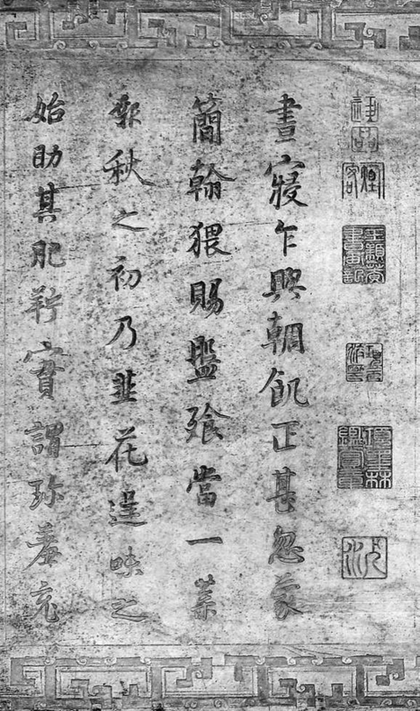 晝寢乍興輖飢正甚忽蒙
簡翰猥賜盤飧當一葉
報秋之初乃韭花逞味之
始助其肥羜實謂珍羞充